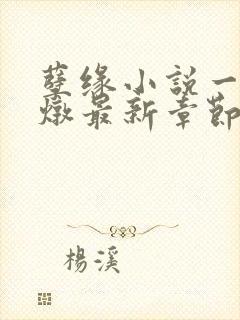 孽缘小説一
燉最新章節
楊溪